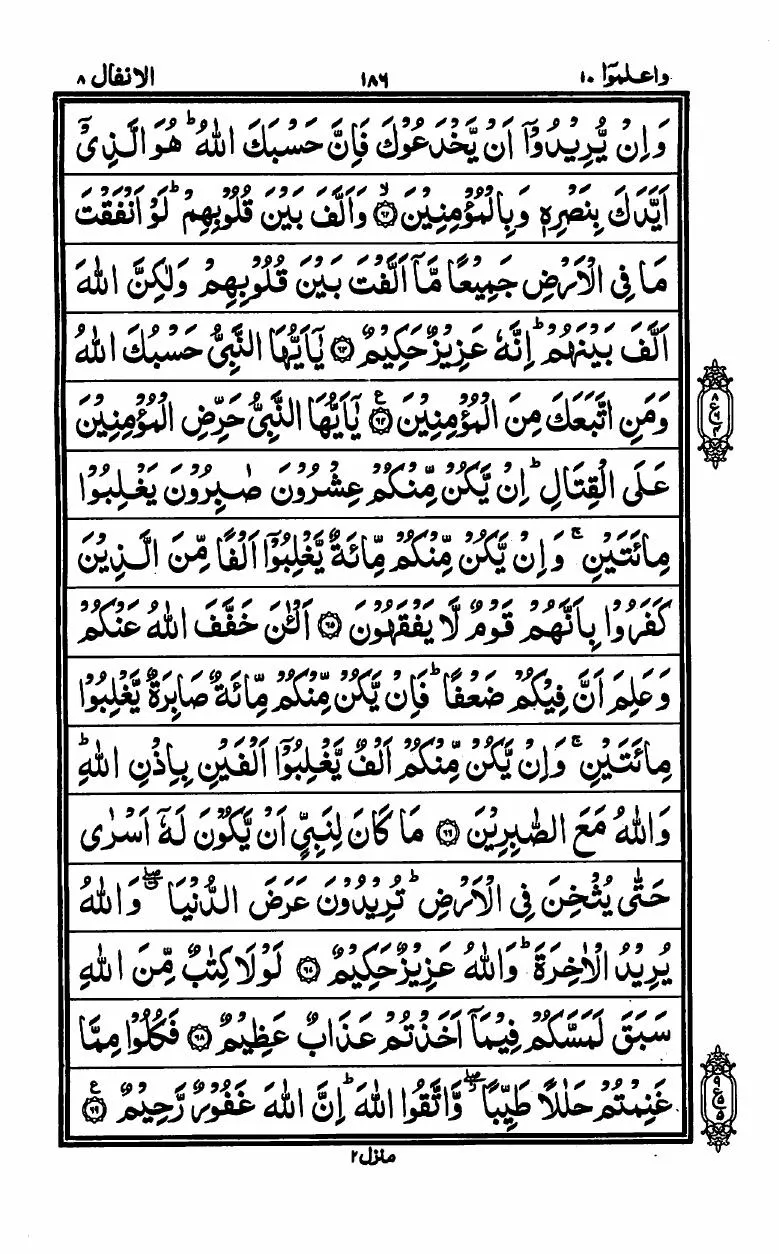 واعلموٓا ١٠ ١٨٦ الانفال ٨
وَاِنْ يُّرِيْدُوْٓا اَنْ يَّخْدَعُوْكَ فَاِنَّ حَسْبَكَ اللّٰهُ ؕ هُوَ الَّذِيْٓ
اَيَّدَكَ بِنَصْرِهٖ وَبِالْمُؤْمِنِيْنَ ۙ﴿۶۲﴾ وَاَلَّفَ بَيْنَ قُلُوْبِهِمْ ؕ لَوْ اَنْفَقْتَ
مَا فِي الْاَرْضِ جَمِيْعًا مَّاۤ اَلَّفْتَ بَيْنَ قُلُوْبِهِمْ وَلٰكِنَّ اللّٰهَ
اَلَّفَ بَيْنَهُمْ ؕ اِنَّهٗ عَزِيْزٌ حَكِيْمٌ ﴿۶۳﴾ يٰۤاَيُّهَا النَّبِيُّ حَسْبُكَ اللّٰهُ
وَمَنِ اتَّبَعَكَ مِنَ الْمُؤْمِنِيْنَ ﴿۶۴﴾ ع يٰۤاَيُّهَا النَّبِيُّ حَرِّضِ الْمُؤْمِنِيْنَ
عَلَى الْقِتَالِ ؕ اِنْ يَّكُنْ مِّنْكُمْ عِشْرُوْنَ صٰبِرُوْنَ يَغْلِبُوْا
مِائَتَيْنِ ۚ وَاِنْ يَّكُنْ مِّنْكُمْ مِّائَةٌ يَّغْلِبُوْۤا اَلْفًا مِّنَ الَّذِيْنَ
كَفَرُوْا بِاَنَّهُمْ قَوْمٌ لَّا يَفْقَهُوْنَ ﴿۶۵﴾ اَلْـٰٔنَ خَفَّفَ اللّٰهُ عَنْكُمْ
وَعَلِمَ اَنَّ فِيْكُمْ ضَعْفًا ؕ فَاِنْ يَّكُنْ مِّنْكُمْ مِّائَةٌ صَابِرَةٌ يَّغْلِبُوْا
مِائَتَيْنِ ۚ وَاِنْ يَّكُنْ مِّنْكُمْ اَلْفٌ يَّغْلِبُوْۤا اَلْفَيْنِ بِاِذْنِ اللّٰهِ ؕ
وَاللّٰهُ مَعَ الصّٰبِرِيْنَ ﴿۶۶﴾ مَا كَانَ لِنَبِيٍّ اَنْ يَّكُوْنَ لَهٗۤ اَسْرٰى
حَتّٰى يُثْخِنَ فِي الْاَرْضِ ؕ تُرِيْدُوْنَ عَرَضَ الدُّنْيَا ۖ وَاللّٰهُ
يُرِيْدُ الْاٰخِرَةَ ؕ وَاللّٰهُ عَزِيْزٌ حَكِيْمٌ ﴿۶۷﴾ لَوْلَا كِتٰبٌ مِّنَ اللّٰهِ
سَبَقَ لَمَسَّكُمْ فِيْمَاۤ اَخَذْتُمْ عَذَابٌ عَظِيْمٌ ﴿۶۸﴾ فَكُلُوْا مِمَّا
غَنِمْتُمْ حَلٰلًا طَيِّبًا ۖ وَّاتَّقُوا اللّٰهَ ؕ اِنَّ اللّٰهَ غَفُوْرٌ رَّحِيْمٌ ﴿۶۹﴾ ع
منزل ٢